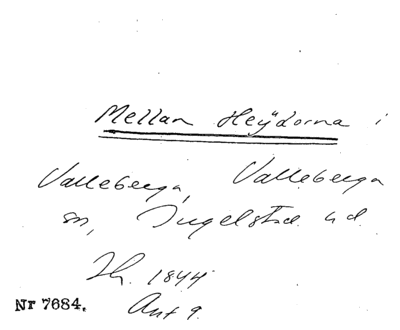 Mellan Heÿdorna i
Valleberga, Valleberga
sn, Ingelstad hd
Ih. 1844
Ant 9.
Nr 7684.